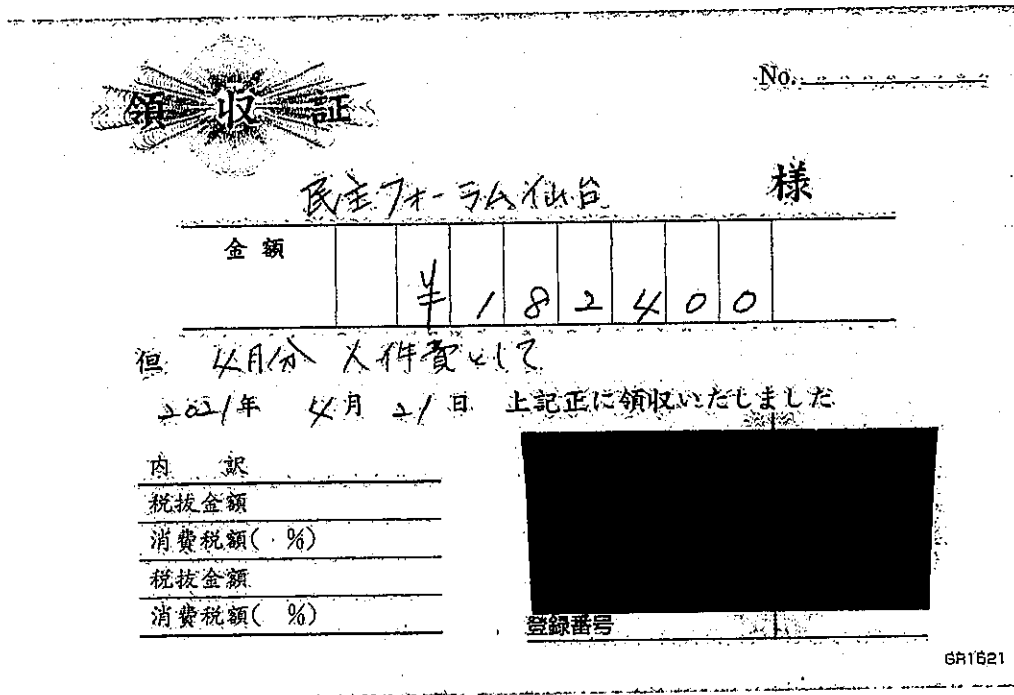 領収証
No.
民主フォーラム仙台 様
金額 ¥182400
但 4月分 人件費として
2021年 4月 21日 上記正に領収いたしました
内 訳
税抜金額
消費税額( %)
税抜金額
消費税額( %)
登録番号
GR1621